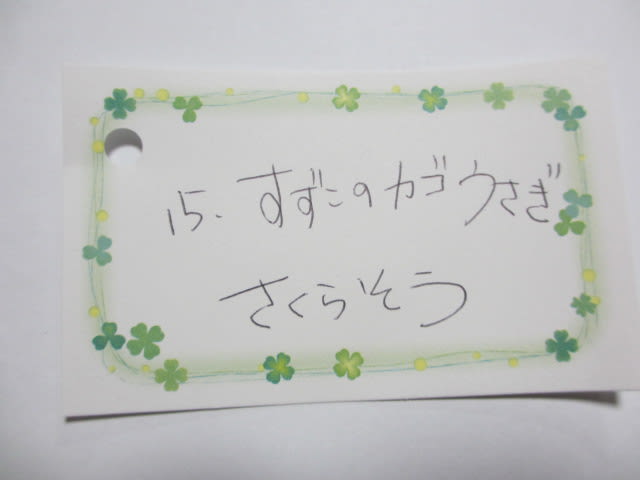 15. すずこのカゴうさぎ
さくらそう